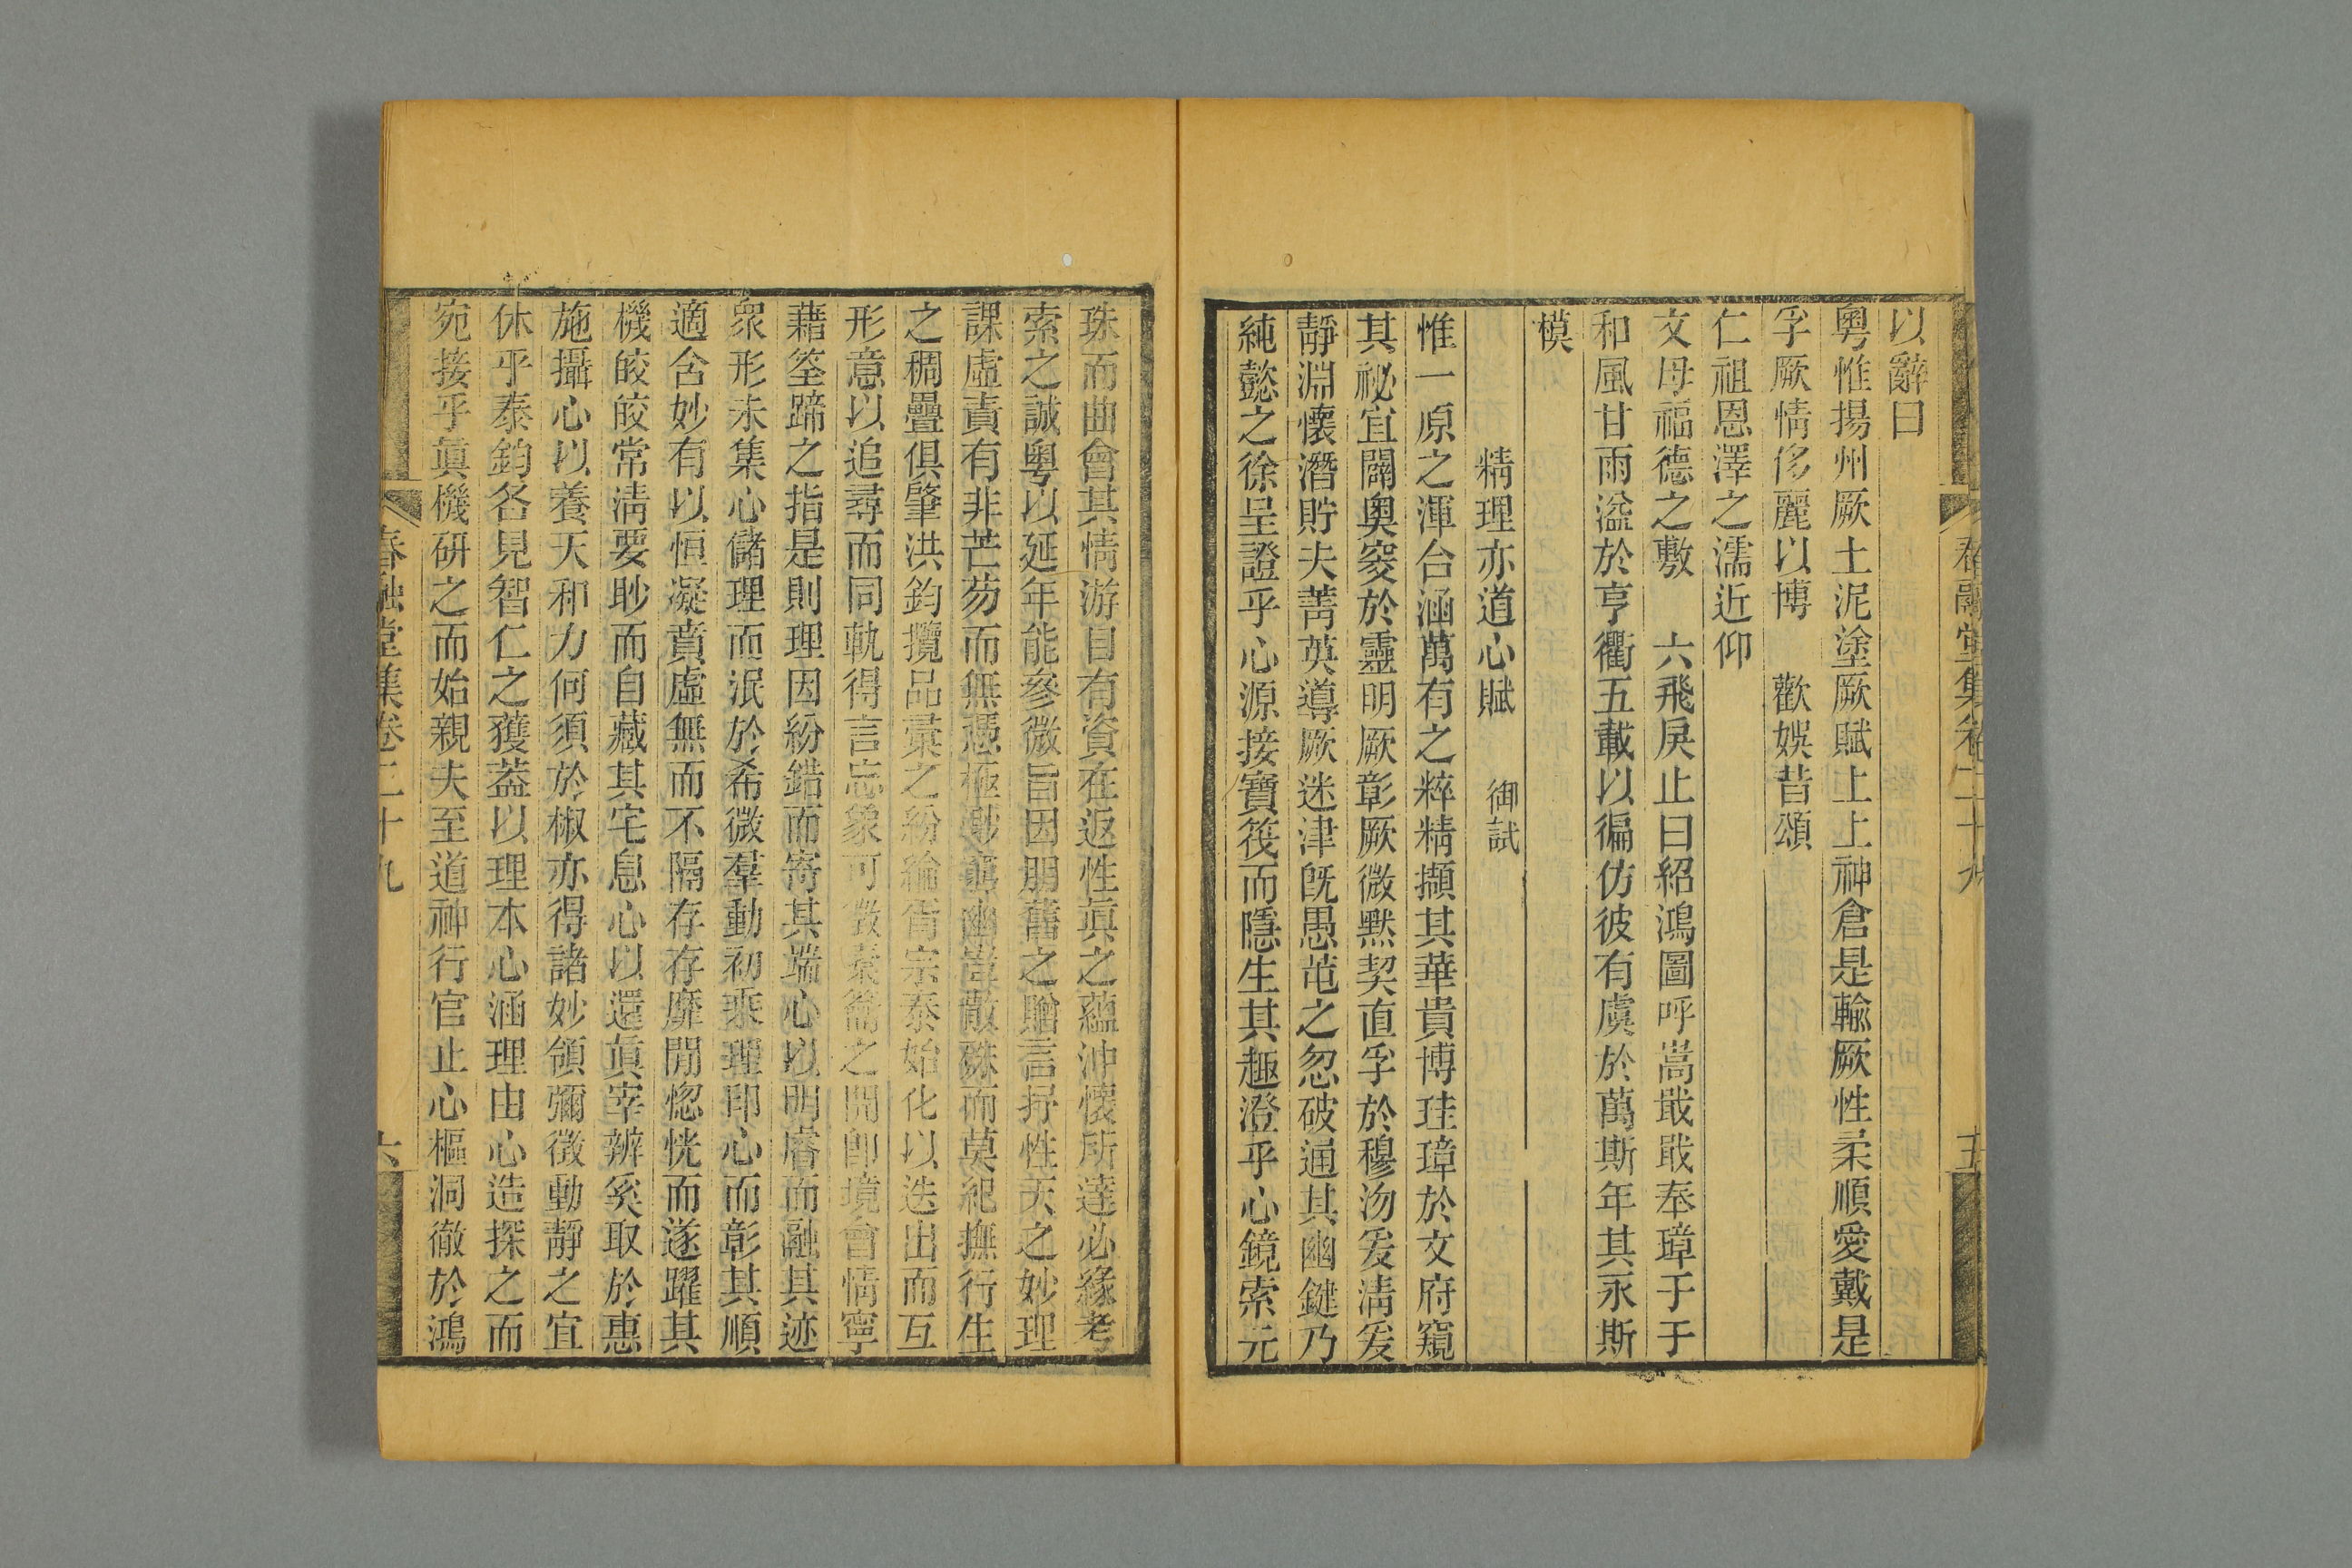 以辭曰
粵惟揚州厥土泥塗厥賦上上神倉是輸厥性柔順愛戴是
孚厥情侈麗以博　歡娛昔頌
仁祖恩澤之濡近仰
文母福德之敷　六飛戾止曰紹鴻圖呼嵩戢戢奉璋于于
和風甘雨溢於亨衢五載以徧仿彼有虞於萬斯年其永斯
模
精理亦道心賦　御試
惟一原之渾台涵萬有之粹精擷其華貴博珪璋於文府窺
其祕宜闢奧窔於靈明厥彰厥微默契直孚於穆沕爰淸爰
靜淵懷潛貯夫菁英導厥迷津旣愚芚之忽破通其幽鍵乃
純懿之徐呈證乎心源接寶筏而隱生其趣澄乎心鏡索元
珠而曲會其情游目有資在返性眞之蘊沖懷所達必緣考
索之誠粵以延年能參微旨因朋舊之贈言抒性天之妙理
課虛責有非芒芴而無憑極幽散殊而莫紀撫行生
之稠疊俱肇洪鈞攬品彙之紛綸胥宗泰始化以迭出而互
形意以追尋而同軌得言忘象可徵橐籥之開卽境會情寧
藉筌蹄之指是則理因紛錯而寄其端心以明睿而融其迹
衆形未集心儲理而泯於希微羣動初乘理印心而彰其順
適含妙有以恒凝賁虛無而不隔存存靡閒惚恍而遂躍其
機皎皎常淸要眇而自藏其宅息心以還眞宰辨奚取於惠
施攝心以養天和力何須於椒亦得諸妙領彌徵動靜之宜
休乎泰鈞各見智仁之獲蓋以理本心涵理由心造探之而
宛接乎眞機硏之而始親夫至道神行官止心樞洞徹於鴻
春融堂集卷二十九
六
春融堂集卷二十九
五